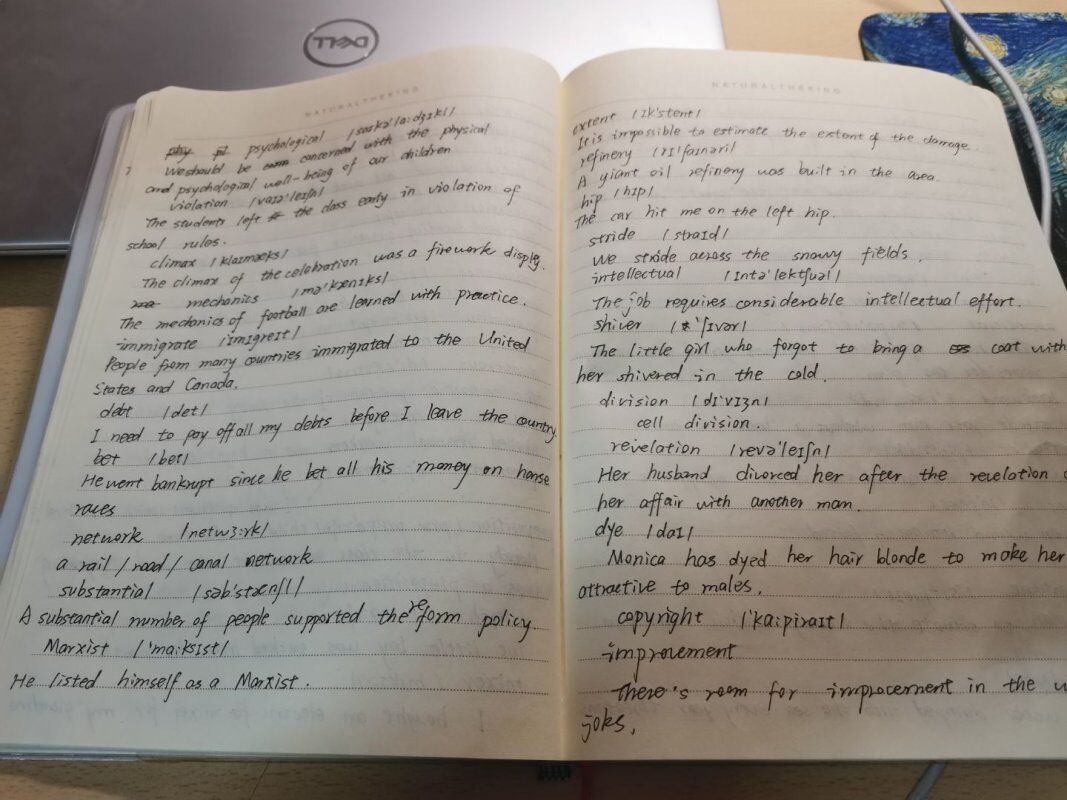 DELL
NATURALTHEKING
psychological /saɪkə'la:dʒɪkl/
We should be concerned with the physical
and psychological well-being of our children
violation /vaɪə'leɪʃn/
The students left the class early in violation of
school rules.
climax /klaɪmæks/
The climax of the celebration was a firework display.
mechanics /mə'kænɪks/
The mechanics of football are learned with practice.
immigrate /'ɪmɪgreɪt/
People from many countries immigrated to the United
States and Canada.
debt /det/
I need to pay off all my debts before I leave the country.
bet /bet/
He went bankrupt since he bet all his money on horse
races
network /netwɜ:rk/
a rail / road / canal network
substantial /səb'stænʃl/
A substantial number of people supported the reform policy.
Marxist /'ma:ksɪst/
He listed himself as a Marxist.
NATURALTHEKING
extent /ɪk'stent/
It is impossible to estimate the extent of the damage.
refinery /rɪ'faɪnəri/
A giant oil refinery was built in the area.
hip /hɪp/
The car hit me on the left hip.
stride /straɪd/
We stride across the snowy fields.
intellectual /ɪntə'lektʃuəl/
The job requires considerable intellectual effort.
shiver /'ʃɪvər/
The little girl who forgot to bring a coat with
her shivered in the cold.
division /dɪ'vɪʒn/
cell division.
revelation /revə'leɪʃn/
Her husband divorced her after the revelation
her affair with another man.
dye /daɪ/
Monica has dyed her hair blonde to make her
attractive to males.
copyright /'ka:piraɪt/
improvement
There's room for improvement in the
joks.